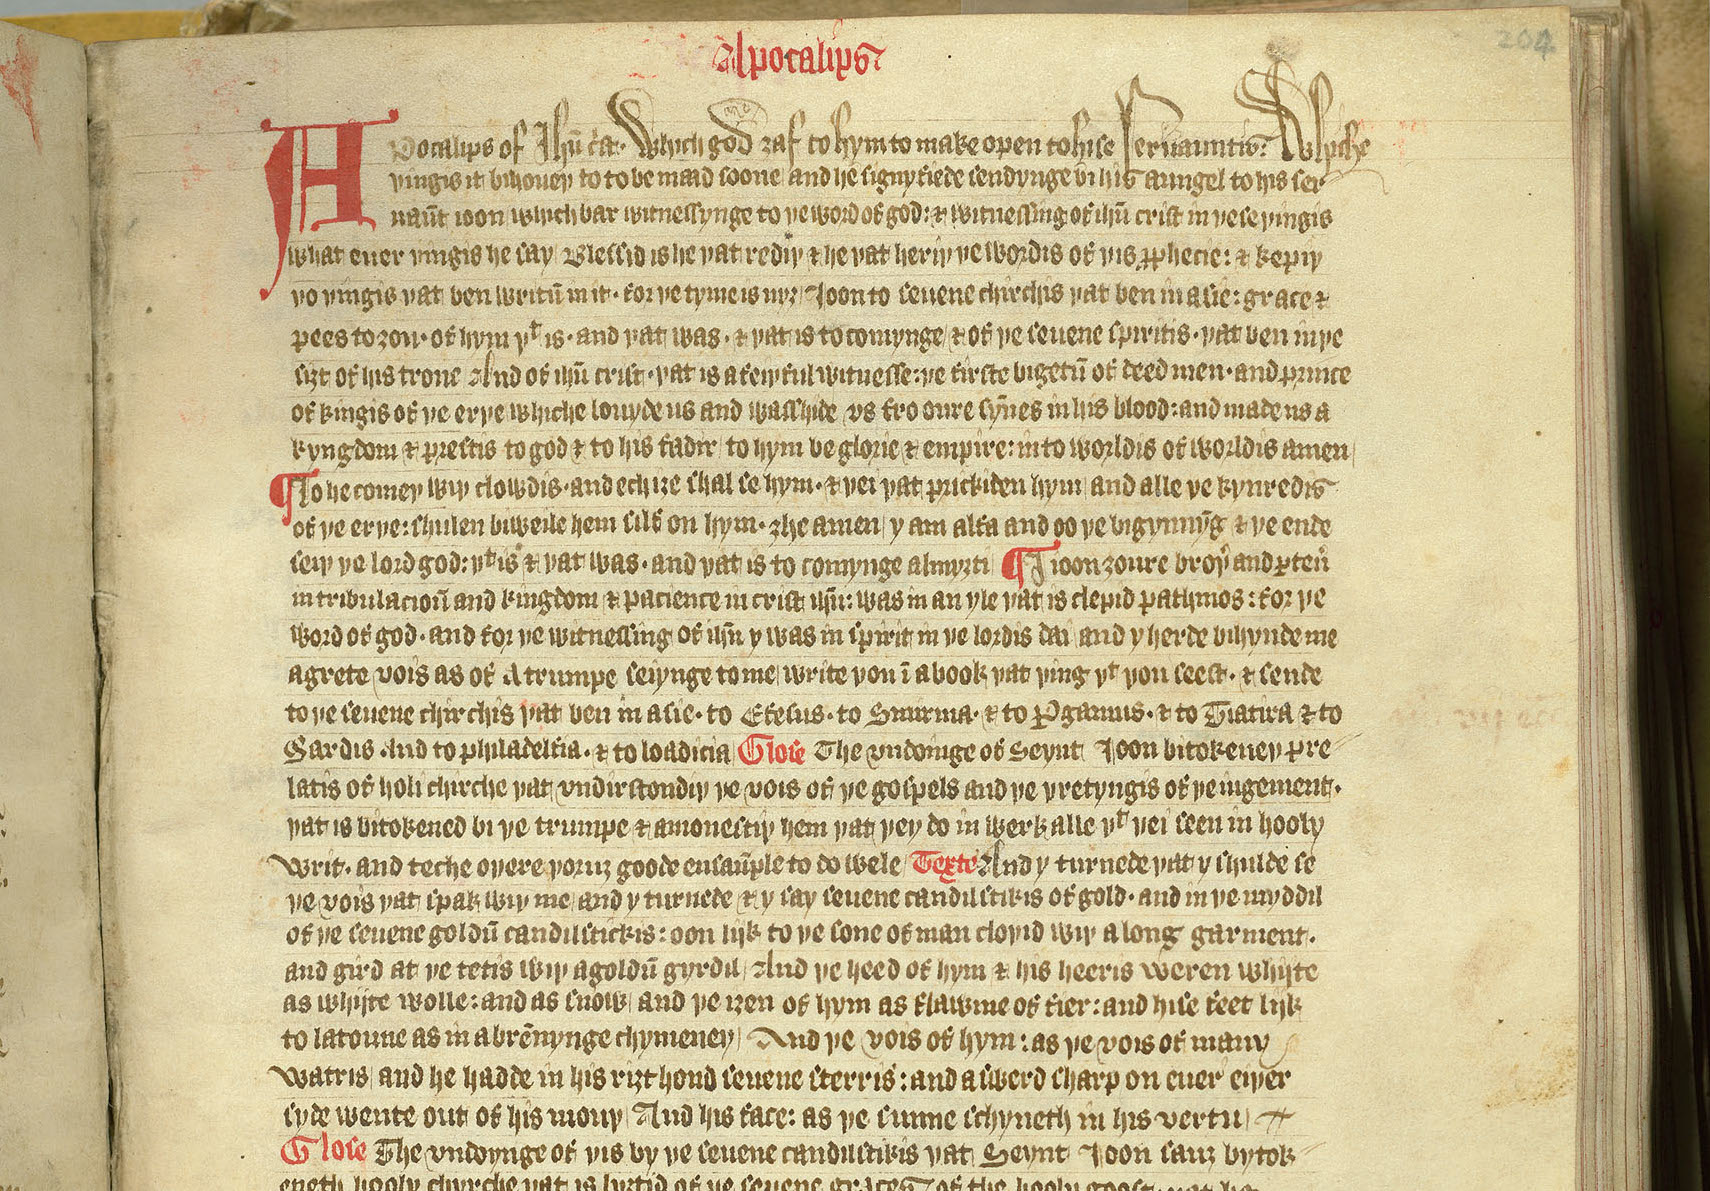 Apocalips
204
Apocalips of Ihū c̄st· Which god ȝaf to hym to make open to hise seruauntis: Whiche
þingis it bihoueþ to to be maad soone and he signyfiede sendynge bi his aungel to his ser-
uaūt ioon which bar witnessynge to þe word of god: & witnessing of ihū crist in þese þingis
what euer þingis he say Blessid is he þat rediþ & he þat heriþ þe wordis of þis pphecie: & kepiþ
þo þingis þat ben writū in it· for þe tyme is nyȝ Ioon to seuene chirchis þat ben in asie: grace &
pees to ȝou· of hym þt is· and þat was· & þat is to comynge & of þe seuene spiritis· þat ben in þe
siȝt of his trone And of ihū crist· þat is a feiþful witnesse: þe firste bigetū of deed men· and prince
of kingis of þe erþe whiche louyde us and waschide vs fro oure syn̄es in his blood: and made us a
kyngdom & prestis to god & to his fadir to hym be glorie & empire: in to worldis of worldis amen
¶ Lo he comeþ wiþ clowdis· and ech iȝe schal se hym· & þei þat prickiden hym and alle þe kynredis
of þe erþe: schulen biweile hem silf on hym· ȝhe amen y am alfa and oo þe bigynnyg̅ & þe ende
seiþ þe lord god: þt is & þat was· and þat is to comynge almyȝti ¶ I ioon ȝoure broþ̉ and pten̉
in tribulacioū and kingdom & pacience in crist ihū: was in an yle þat is clepid pathmos: for þe
word of god· and for þe witnessing of ihū y was in spirit in þe lordis dai and y herde bihynde me
a grete vois as of A trumpe seiynge to me write þou ī a book þat þing þt þou seest· & sende
to þe seuene chirchis þat ben in asie· to Efesus· to Smirma· & to Pgamus· & to Tiatira & to
Sardis· And to philadelfia· & to loadicia Glose The vndoinge of Seynt Ioon bitokeneþ pre-
latis of holi chirche þat vndirstondiþ þe vois of þe gospels and þe þretyngis of þe iugement·
þat is bitokened bi þe trumpe & amonestiþ hem þat þey do in werk alle þt þei seen in hooly
writ· and teche oþere þoruȝ goode ensaūple to do wele Texte And y turnede þat y schulde se
þe vois þat spak wiþ me and y turnede & y say seuene candilstikis of gold· and in þe myddil
of þe seuene goldū candilstickis: oon lijk to þe sone of man cloþid wiþ a long garment·
and gird at þe tetis wiþ a goldū gyrdil And þe heed of hym & his heeris weren whijte
as whijte wolle: and as snow and þe iȝen of hym as flawme of fier: and hise feet lijk
to latoune as in a bren̄ynge chymeney And þe vois of hym: as þe vois of many
watris and he hadde in his riȝt hond seuene sterris: and a swerd scharp on euer eiþer
syde wente out of his mouþ And his face: as þe sunne schyneth in his vertu
Glose The vndoynge of þis by þe seuene candilstikis þat Seynt Ioon sauȝ bytok-
eneth hooly chyrche þat is lyȝtid of þe seuene graces of the hooly goost·